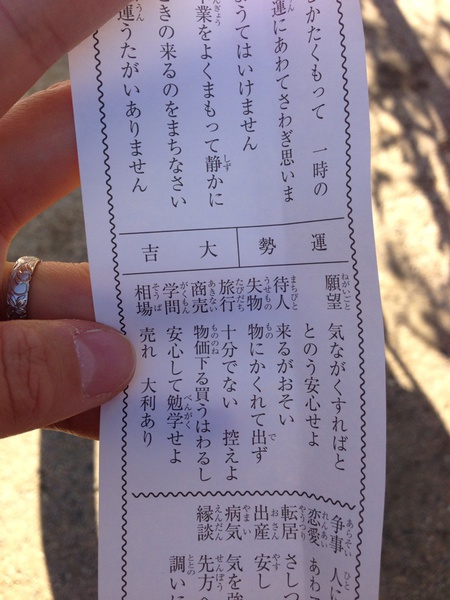 かたくもって 一時の
運にあわてさわぎ思いま
ようてはいけません
業をよくまもって静かに
きの来るのをまちなさい
運うたがいありません
運勢
大吉
願望 気ながくすればと
とのう安心せよ
待人 来るがおそい
失物 物にかくれて出ず
旅行 十分でない 控えよ
商売 物価下る買うはわるし
学問 安心して勉学せよ
相場 売れ 大利あり
争事 人に
恋愛 あわ
転居 さしつ
出産 安し
病気 気を強
縁談 先方
調い